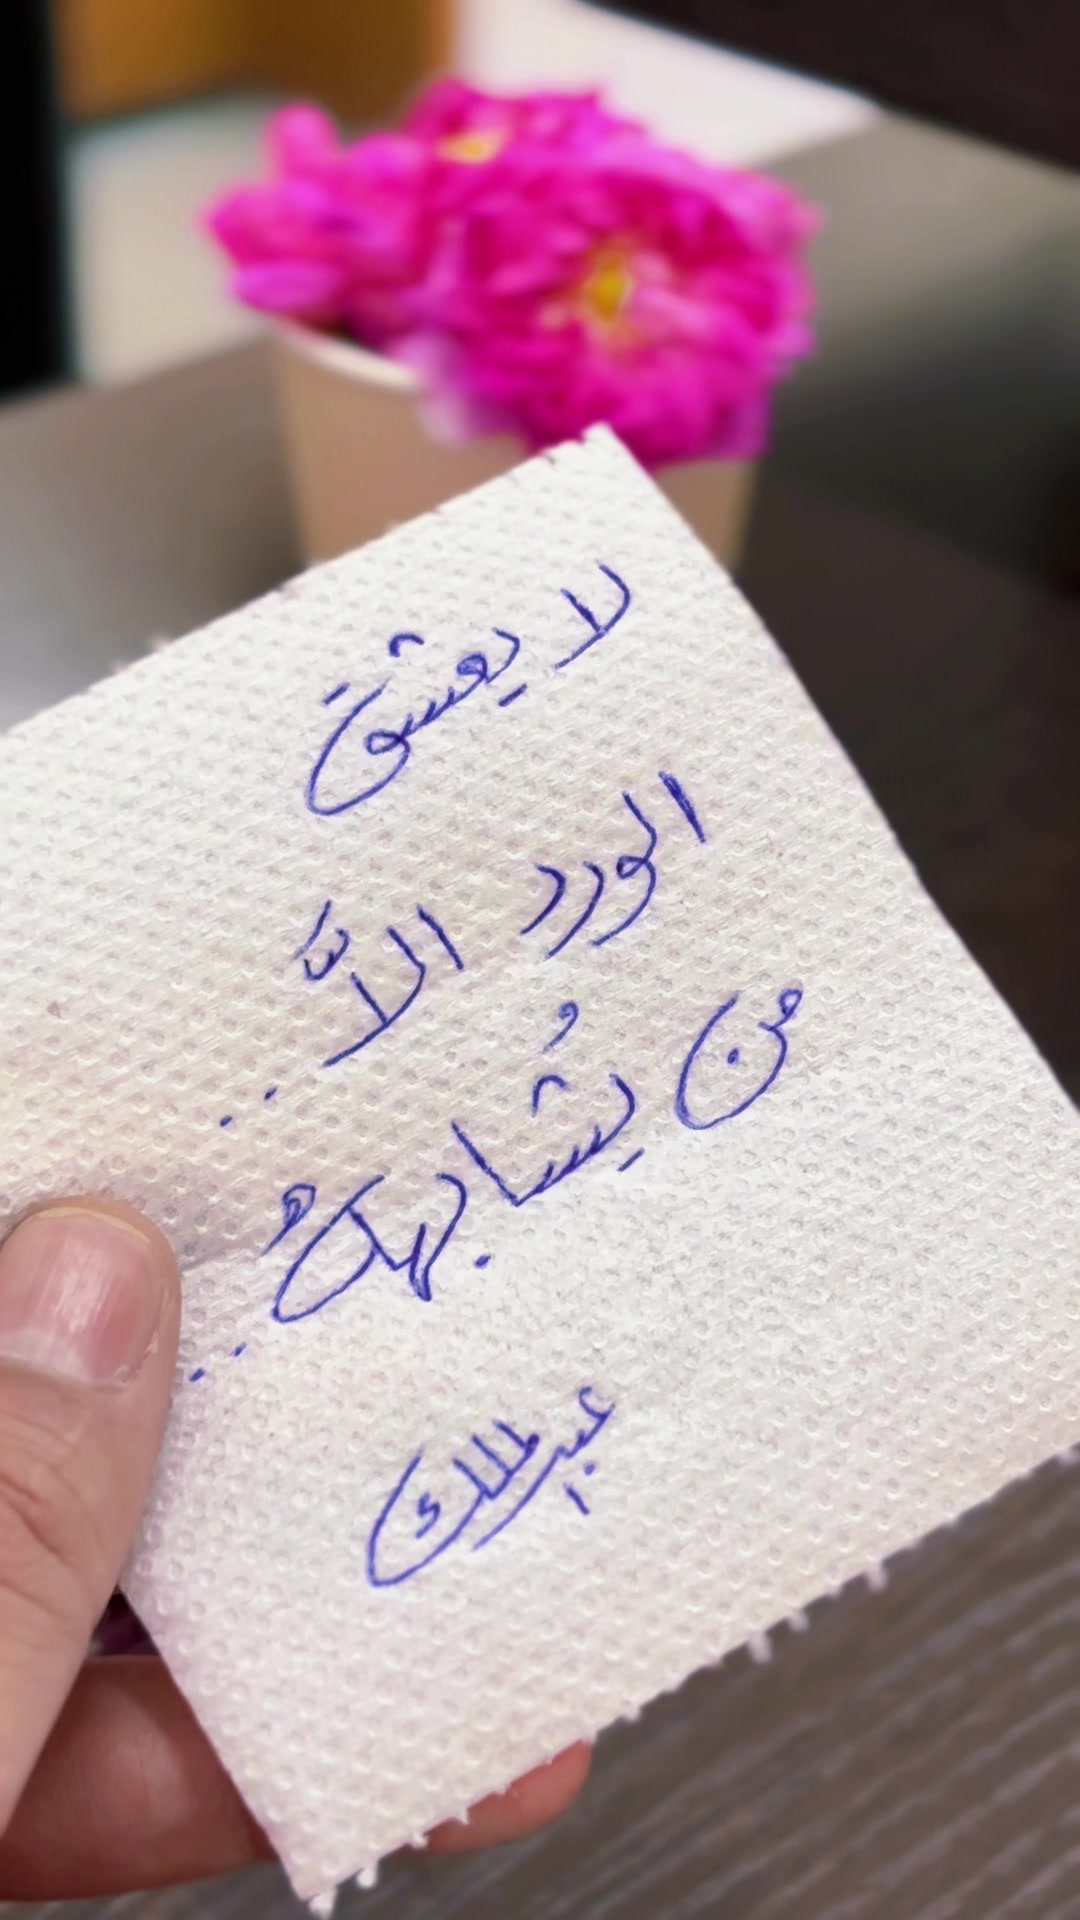 لا يعشق
الورد الاَّ ..
من يُشابهكُ ..
عبدالملك